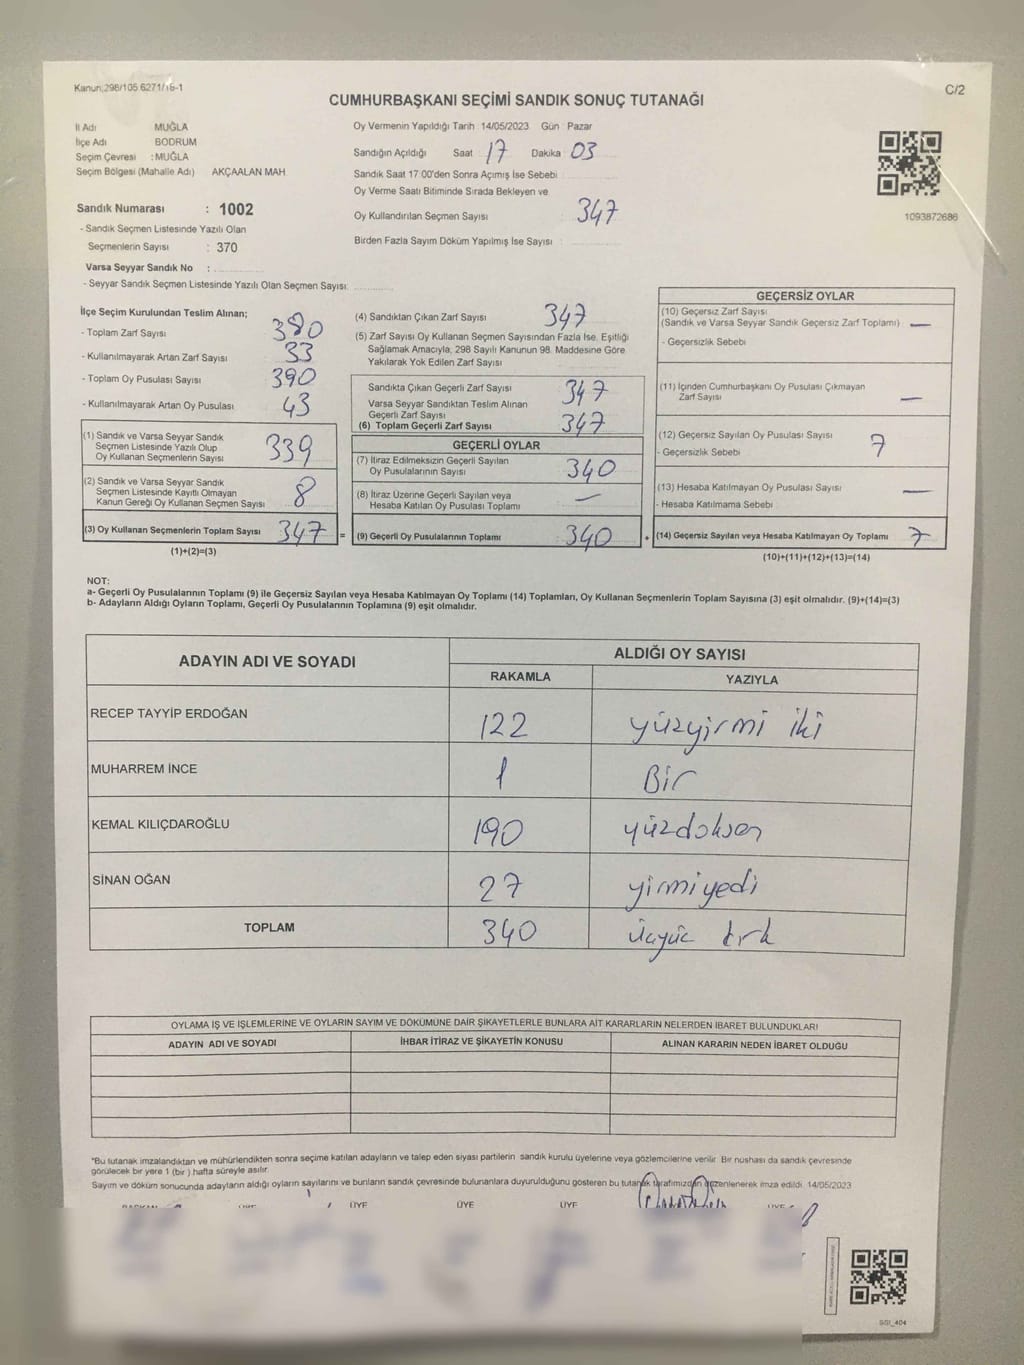 Kanun:298/105 6271/16-1
C/2
CUMHURBAŞKANI SEÇİMİ SANDIK SONUÇ TUTANAĞI
İl Adı MUĞLA
İlçe Adı BODRUM
Seçim Çevresi : MUĞLA
Seçim Bölgesi (Mahalle Adı) AKÇAALAN MAH
Sandık Numarası : 1002
- Sandık Seçmen Listesinde Yazılı Olan
Seçmenlerin Sayısı : 370
Varsa Seyyar Sandık No :
- Seyyar Sandık Seçmen Listesinde Yazılı Olan Seçmen Sayısı:
Oy Vermenin Yapıldığı Tarih 14/05/2023 Gün Pazar
Sandığın Açıldığı Saat 17 Dakika 03
Sandık Saat 17:00'den Sonra Açımış İse Sebebi
Oy Verme Saati Bitiminde Sırada Bekleyen ve
Oy Kullandırılan Seçmen Sayısı 347
Birden Fazla Sayım Döküm Yapılmış İse Sayısı :
1093872686
İlçe Seçim Kurulundan Teslim Alınan;
- Toplam Zarf Sayısı 380
- Kullanılmayarak Artan Zarf Sayısı 33
- Toplam Oy Pusulası Sayısı 390
- Kullanılmayarak Artan Oy Pusulası 43
(1) Sandık ve Varsa Seyyar Sandık
Seçmen Listesinde Yazılı Olup
Oy Kullanan Seçmenlerin Sayısı 339
(2) Sandık ve Varsa Seyyar Sandık
Seçmen Listesinde Kayıtlı Olmayan
Kanun Gereği Oy Kullanan Seçmen Sayısı 8
(3) Oy Kullanan Seçmenlerin Toplam Sayısı 347 =
(1)+(2)=(3)
(4) Sandıktan Çıkan Zarf Sayısı 347
(5) Zarf Sayısı Oy Kullanan Seçmen Sayısından Fazla İse, Eşitliği
Sağlamak Amacıyla, 298 Sayılı Kanunun 98. Maddesine Göre
Yakılarak Yok Edilen Zarf Sayısı
Sandıkta Çıkan Geçerli Zarf Sayısı 347
Varsa Seyyar Sandıktan Teslim Alınan
Geçerli Zarf Sayısı
(6) Toplam Geçerli Zarf Sayısı 347
GEÇERLİ OYLAR
(7) İtiraz Edilmeksizin Geçerli Sayılan
Oy Pusulalarının Sayısı 340
(8) İtiraz Üzerine Geçerli Sayılan veya
Hesaba Katılan Oy Pusulası Toplamı —
(9) Geçerli Oy Pusulalarının Toplamı 340 +
GEÇERSİZ OYLAR
(10) Geçersiz Zarf Sayısı
(Sandık ve Varsa Seyyar Sandık Geçersiz Zarf Toplamı) —
- Geçersizlik Sebebi
(11) İçinden Cumhurbaşkanı Oy Pusulası Çıkmayan
Zarf Sayısı —
(12) Geçersiz Sayılan Oy Pusulası Sayısı 7
- Geçersizlik Sebebi
(13) Hesaba Katılmayan Oy Pusulası Sayısı —
- Hesaba Katılmama Sebebi
(14) Geçersiz Sayılan veya Hesaba Katılmayan Oy Toplamı 7
(10)+(11)+(12)+(13)=(14)
NOT:
a- Geçerli Oy Pusulalarının Toplamı (9) ile Geçersiz Sayılan veya Hesaba Katılmayan Oy Toplamı (14) Toplamları, Oy Kullanan Seçmenlerin Toplam Sayısına (3) eşit olmalıdır. (9)+(14)=(3)
b- Adayların Aldığı Oyların Toplamı, Geçerli Oy Pusulalarının Toplamına (9) eşit olmalıdır.
ADAYIN ADI VE SOYADI ALDIĞI OY SAYISI
RAKAMLA YAZIYLA
RECEP TAYYİP ERDOĞAN 122 yüzyirmi iki
MUHARREM İNCE 1 Bir
KEMAL KILIÇDAROĞLU 190 yüzdoksan
SİNAN OĞAN 27 yirmiyedi
TOPLAM 340 üçyüz kırk
OYLAMA İŞ VE İŞLEMLERİNE VE OYLARIN SAYIM VE DÖKÜMÜNE DAİR ŞİKAYETLERLE BUNLARA AİT KARARLARIN NELERDEN İBARET BULUNDUKLARI
ADAYIN ADI VE SOYADI İHBAR İTİRAZ VE ŞİKAYETİN KONUSU ALINAN KARARIN NEDEN İBARET OLDUĞU
*Bu tutanak imzalandıktan ve mühürlendikten sonra seçime katılan adayların ve talep eden siyasi partilerin sandık kurulu üyelerine veya gözlemcilerine verilir. Bir nüshası da sandık çevresinde
görülecek bir yere 1 (bir ) hafta süreyle asılır.
Sayım ve döküm sonucunda adayların aldığı oyların sayılarını ve bunların sandık çevresinde bulunanlara duyurulduğunu gösteren bu tutanak tarafımızdan düzenlenerek imza edildi. 14/05/2023
ÜYE ÜYE ÜYE
SSI_404